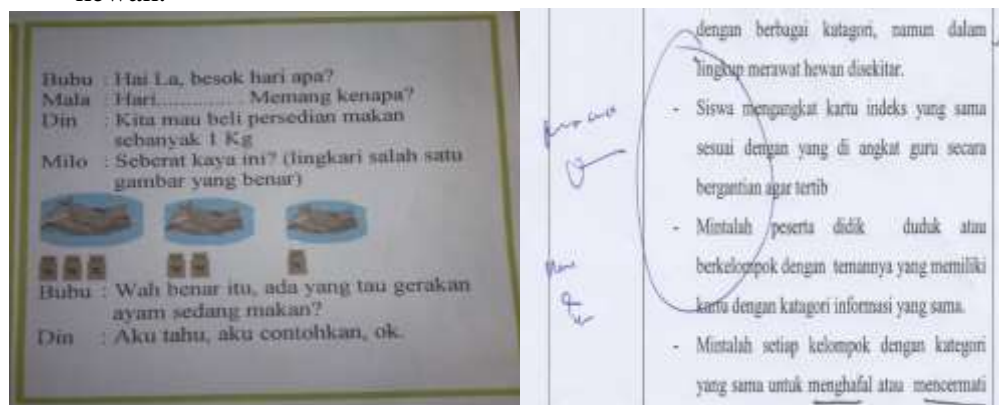 Bubu : Hai La, besok hari apa?
Mala : Hari.............. Memang kenapa?
Din : Kita mau beli persedian makan
sebanyak 1 Kg
Milo : Seberat kaya ini? (lingkari salah satu
gambar yang benar)
Bubu : Wah benar itu, ada yang tau gerakan
ayam sedang makan?
Din : Aku tahu, aku contohkan, ok.
dengan berbagai katagori, namun dalam
lingkup merawat hewan disekitar.
- Siswa mengangkat kartu indeks yang sama
sesuai dengan yang di angkat guru secara
bergantian agar tertib
- Mintalah peserta didik duduk atau
berkelompok dengan temannya yang memiliki
kartu dengan katagori informasi yang sama.
- Mintalah setiap kelompok dengan kategori
yang sama untuk menghafal atau mencermati